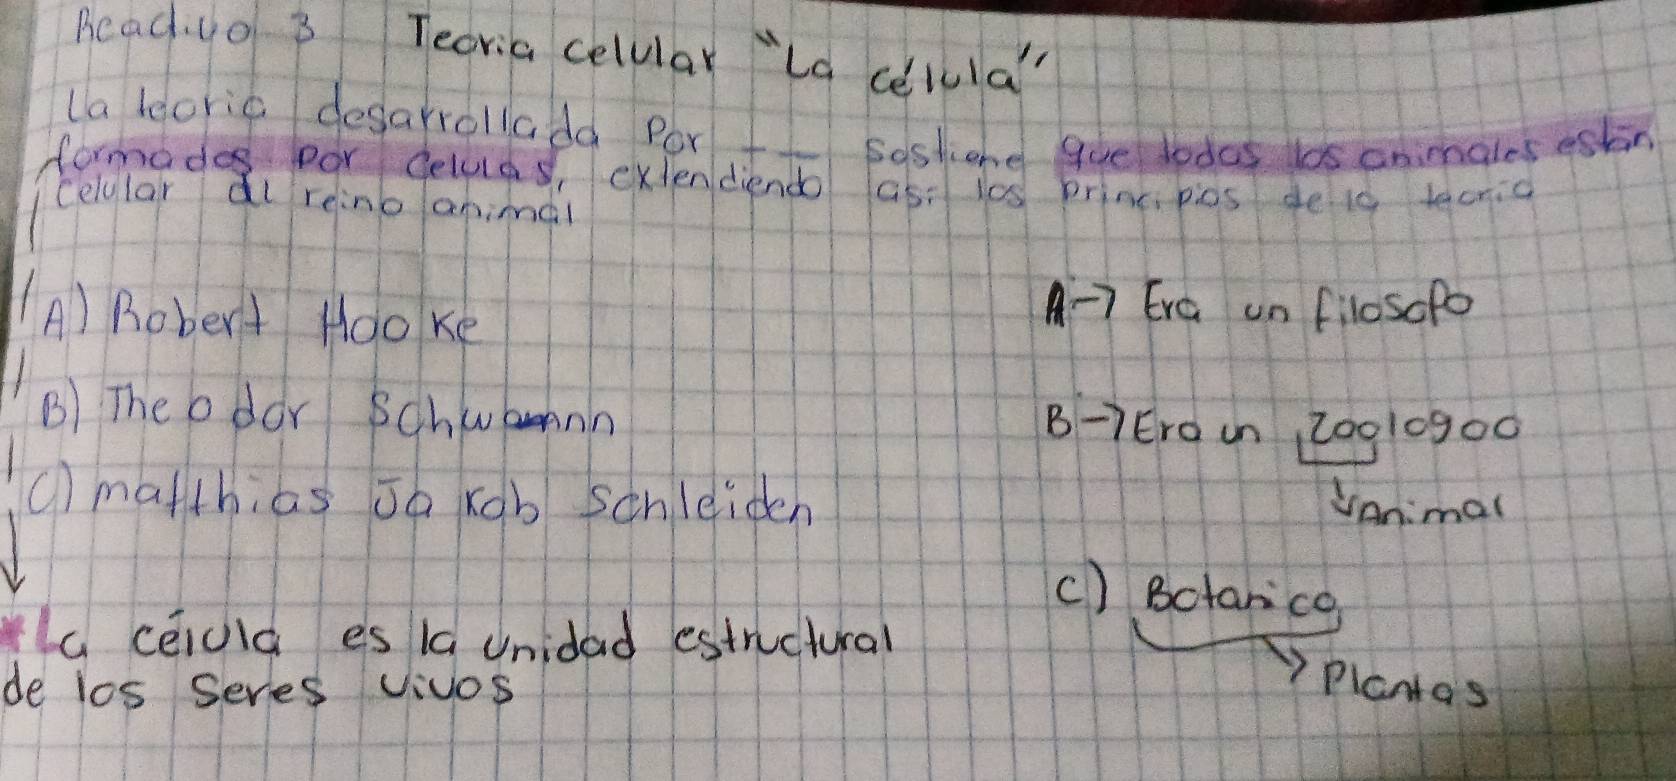 Reactivo 3 Teoria celular "La célula"
La teoria desarrollada por __ __ sostiene que todos los animales están
formados por celulas, extendiendo asi los principios de la teoria
celular al reino animal
A) Robert Hooke
A-> Era un filosofo
B) Theodor Schwann
B-> Era un zoologoo
Animal
C) matthias Jakob Schleiden
C) Botanico
Plantas
*La célula es la unidad estructural
de los seres vivos